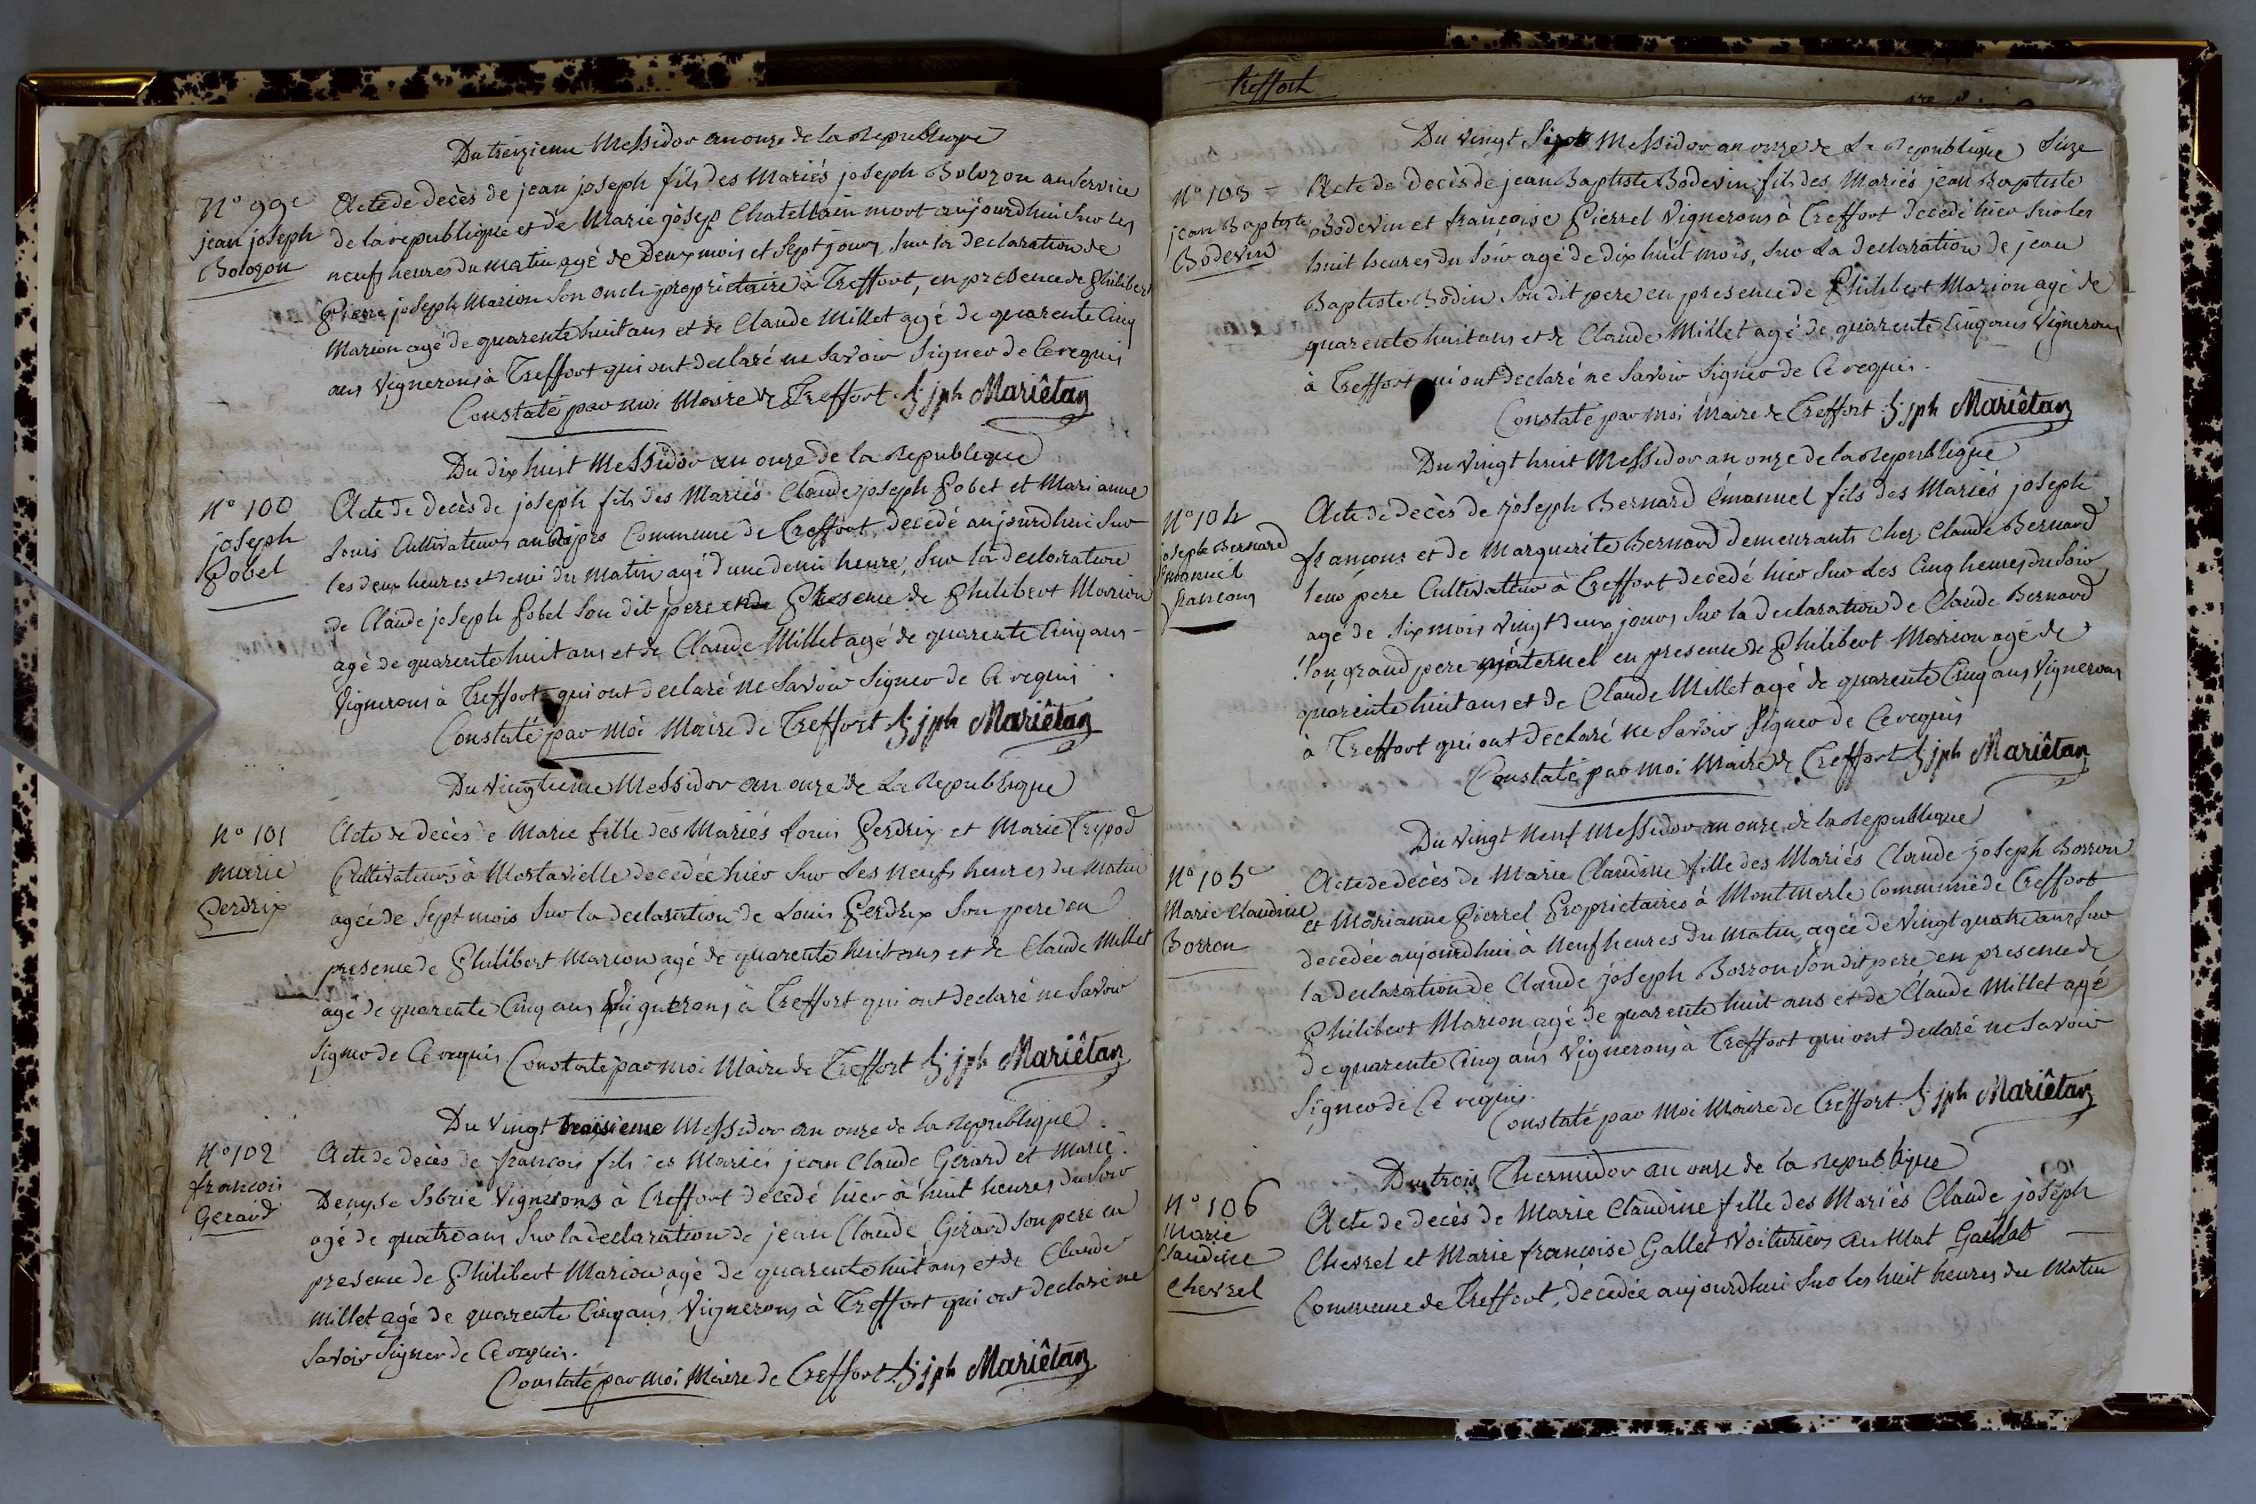 Du treizieme Messidor an onze de la Republique
N° 99e
jean joseph
Bolozon
Acte de decès de jean joseph fils des Mariés joseph Bolozon au Service
de la republique et de Marie josep. Chatellain mort aujourdhui Sur les
neuf heures du matin agé de deux mois et Sept jours, Sur la declaration de
Pierre joseph Marion Son oncle proprietaire à Treffort, en presence de Philibert
Marion agé de quarente huit ans et de Claude Millet agé de quarente Cinq
ans Vignerons à Treffort qui ont declaré ne Savoir Signer de Ce requis
Constaté par moi Maire de Treffort. jph Mariêtan
Du dix huit Messidor an onze de la Republique
N° 100
joseph
Pobel
Acte de decès de joseph fils des Mariés Claude joseph Pobet et Marianne
Louis Cultivateurs Commune de Treffort decedé aujourdhui Sur
les deux heures et demi du matin agé d'une demi heure, Sur la declaration
de Claude joseph Pobel Son dit pere en Presence de Philibert Marion
agé de quarente huit ans et de Claude Millet agé de quarente Cinq ans
Vignerons à Treffort qui ont declaré ne Savoir Signer de Ce requis
Constaté par moi Maire de Treffort jph Mariêtan
Du Vingtieme Messidor an onze de La Republique
N° 101
marie
Perdrix
Acte de decès de Marie fille des Mariés Louis Perdrix et Marie Trypod
Cultivateurs à Mostavielle decedée hier Sur Les neufs heures du Matin
agée de Sept mois Sur la declaration de Louis Perdrix Son pere en
presence de Philibert Marion agé de quarente huit ans et de Claude Millet
agé de quarente Cinq ans Vignerons à Treffort qui ont declaré ne Savoir
Signer de Ce requis. Constaté par moi Maire de Treffort jph Mariêtan
Du Vingt troisieme Messidor an onze de la Republique
N° 102
francois
Gerard
Acte de decès de francois fils des Mariés jean Claude Gerard et Marie
Denyse Vignerons à Treffort decedé hier à huit heures du Soir
agé de quatre ans Sur la declaration de jean Claude Girard Son pere en
presence de Philibert Marion agé de quarente huit ans et de Claude
Millet agé de quarente Cinq ans, Vignerons à Treffort qui ont declaré ne
Savoir Signer de Ce requis.
Constaté par moi Maire de Treffort. jph Mariêtan
Treffort
Du Vingt Messidor an onze de La Republique Seize
N° 103
jean Baptiste
Bodevin
Acte de decès de jean Baptiste Bodevin fils des Mariés jean Baptiste
Bodevin et françoise Pierrel Vignerons à Treffort decedé hier Sur les
huit heures du Soir agé de dix huit mois, Sur La declaration de jean
Baptiste Bodin Son dit pere en presence de Philibert Marion agé de
quarente huit ans et de Claude Millet agé de quarente Cinq ans Vignerons
à Treffort qui ont declaré ne Savoir Signer de Ce requis.
Constaté par moi Maire de Treffort. jph Mariêtan
Du Vingt huit Messidor an onze de la Republique
N° 104
joseph Bernard
Emanuel
francons
Acte de decès de joseph Bernard Emanuel fils des Mariés joseph
francons et de Marguerite Bernard demeurants Chez Claude Bernard
leur pere Cultivateur à Treffort decedé hier Sur Les Cinq heures du Soir
agé de Six mois Vingt deux jours Sur la declaration de Claude Bernard
Son grand pere maternel en presence de Philibert Marion agé de
quarente huit ans et de Claude Millet agé de quarente Cinq ans Vignerons
à Treffort qui ont declaré ne Savoir Signer de Ce requis
Constaté par moi Maire de Treffort jph Mariêtan
Du Vingt Neuf Messidor an onze de la Republique
N° 105e
Marie Claudine
Borron
Acte de decès de Marie Claudine fille des Mariés Claude joseph Borron
et Marianne Pierrel Proprietaires à Montmerle Commune de Treffort
decedée aujourdhui à Neuf heures du Matin, agée de Vingt quatre ans Sur
la declaration de Claude joseph Borron Son dit pere en presence de
Philibert Marion agé de quarente huit ans et de Claude Millet agé
de quarente Cinq ans Vignerons à Treffort qui ont declaré ne Savoir
Signer de Ce requis.
Constaté par Moi Maire de Treffort. jph Mariêtan
Du trois Thermidor an onze de la Republique
N° 106
Marie
Claudine
Chevrel
Acte de decès de Marie Claudine fille des Mariés Claude joseph
Chevrel et Marie françoise Gallet Voituriers au Mat Gaillat
Commune de Treffort, decedée aujourdhui Sur les huit heures du Matin